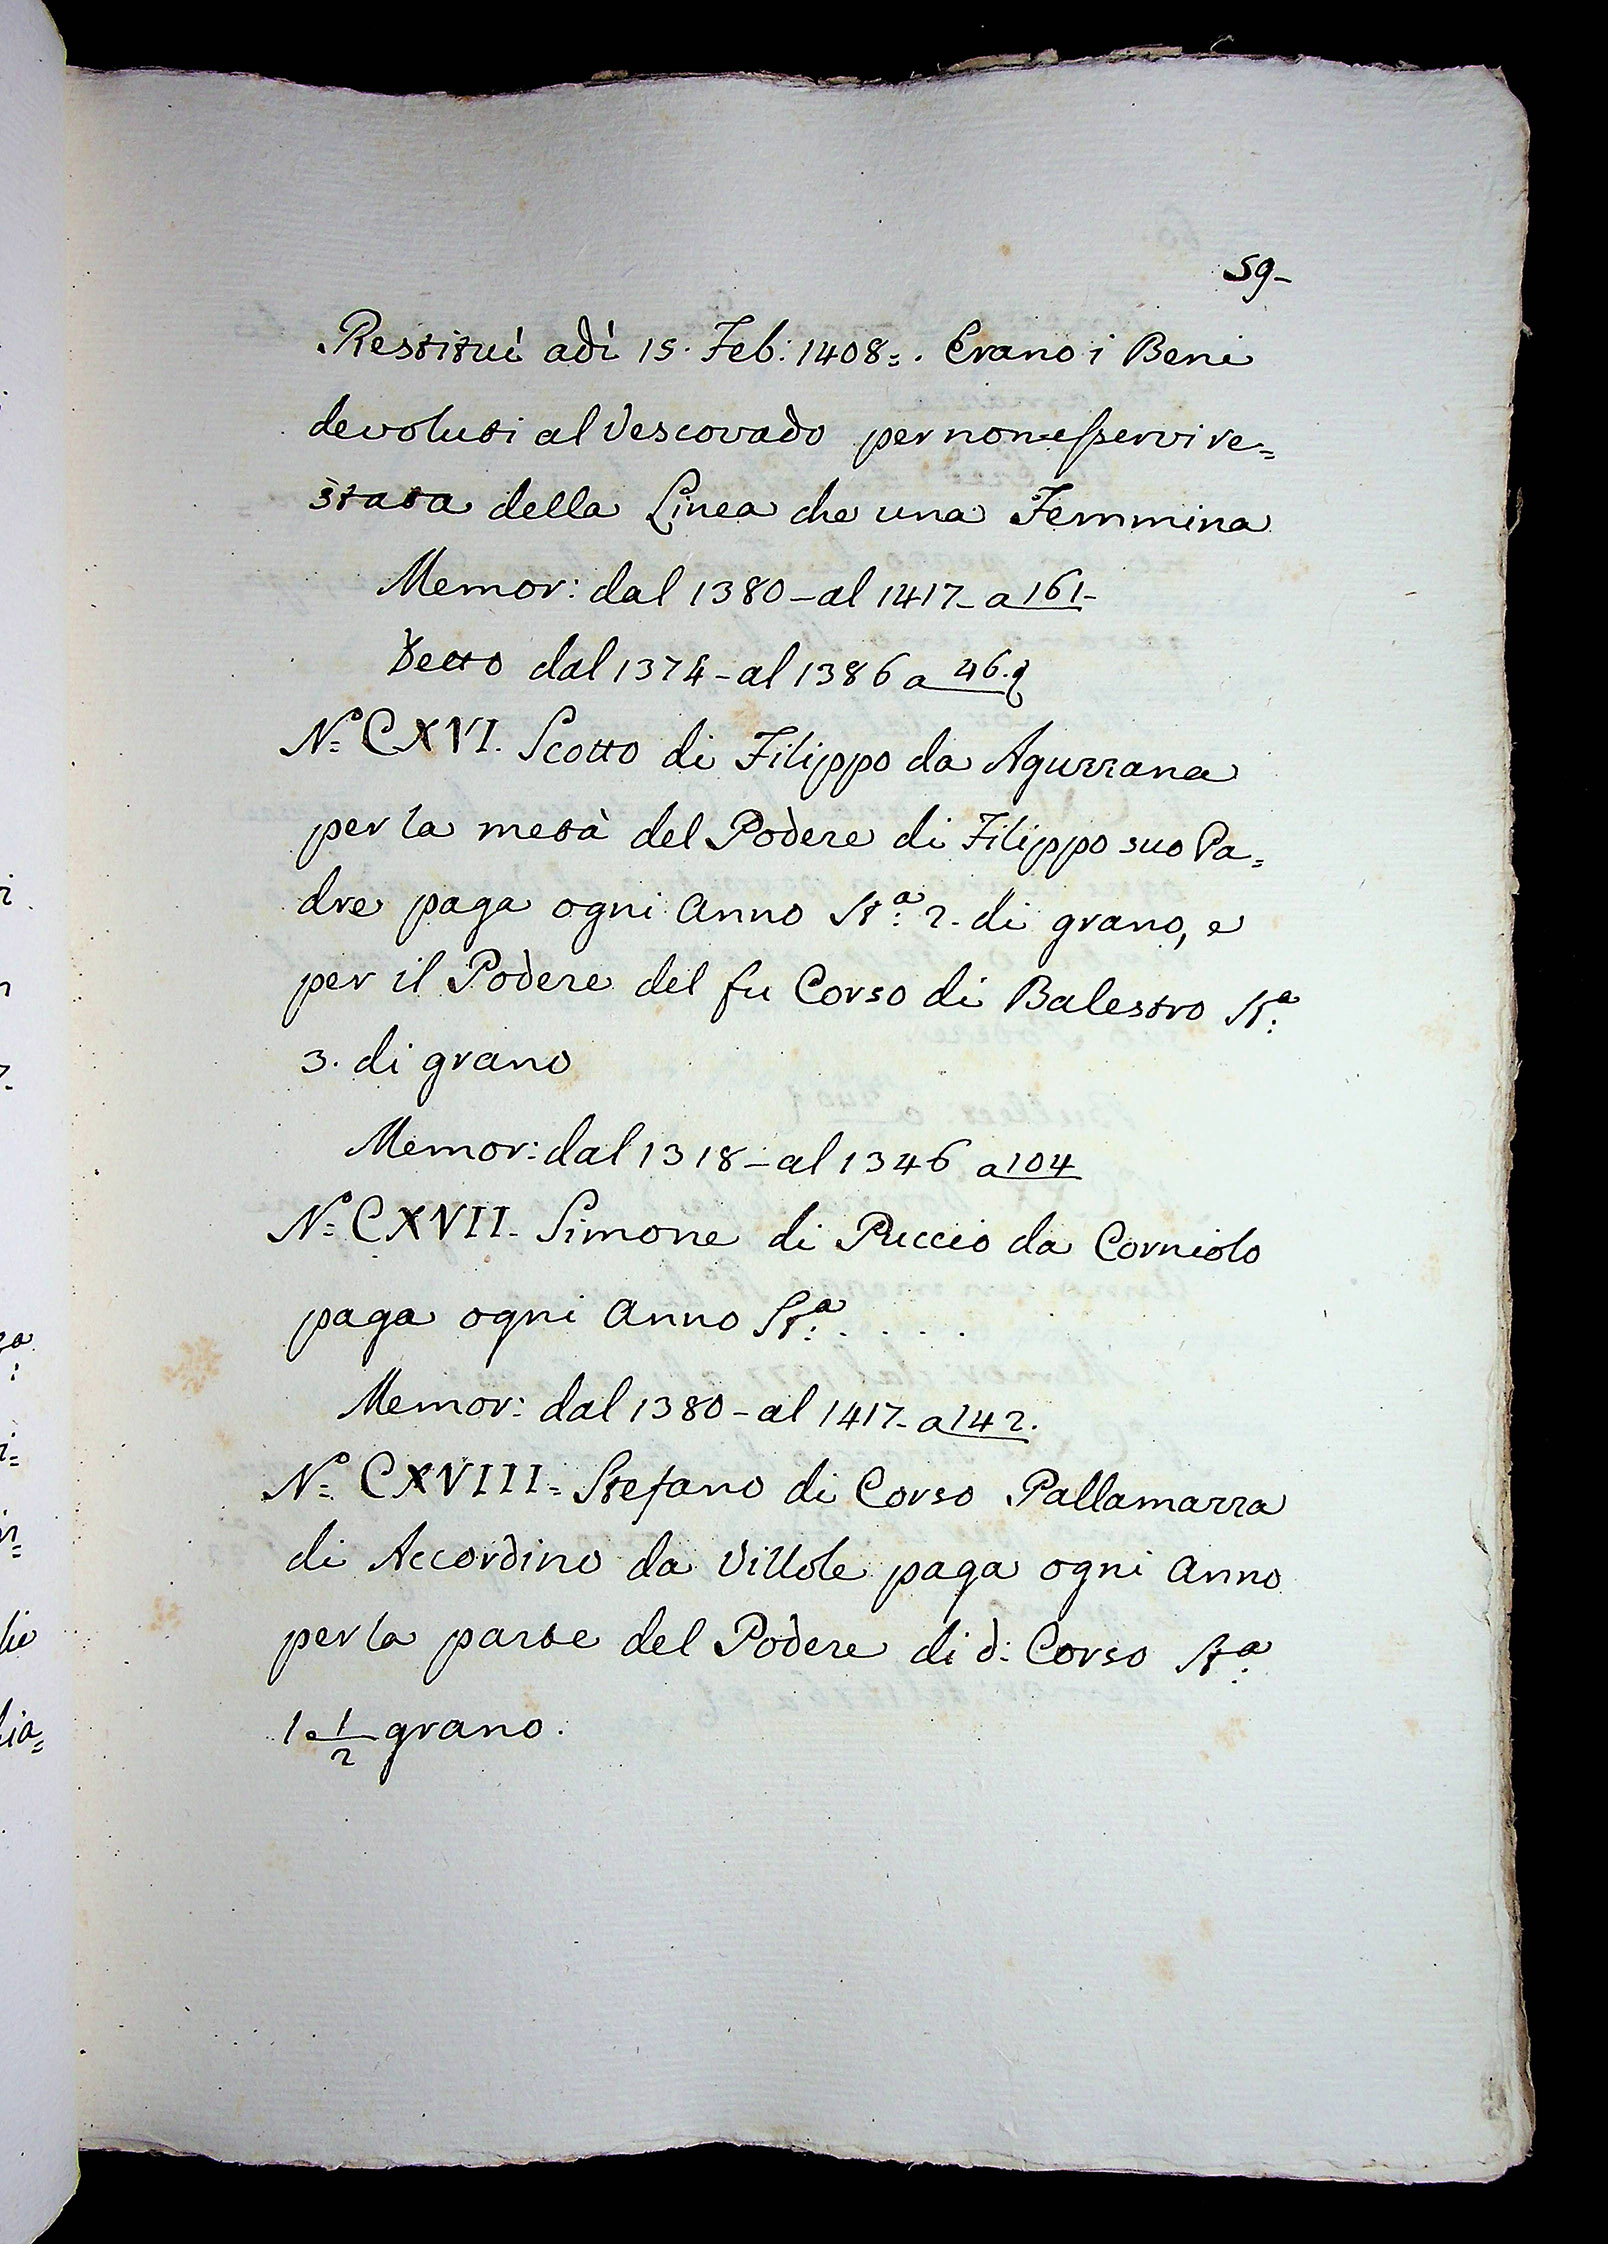 59-
Restituì adì 15. Feb: 1408=. Erano i Beni
devoluti al Vescovado per non esservi re=
stata della Linea che una Femmina
Memor: dal 1380-al 1417- a 161-
Detto dal 1374-al 1386 a 46.
N.º CXVI. Scotto di Filippo da Aguzzana
per la metà del Podere di Filippo suo Pa=
dre paga ogni Anno St.ª 2. di grano, e
per il Podere del fu Corso di Balestro St.ª
3. di grano
Memor: dal 1318-al 1346 a 104
N.º CXVII. Simone di Puccio da Corniolo
paga ogni Anno St.ª . . . .
Memor: dal 1380-al 1417- a 142.
N.º CXVIII= Stefano di Corso Pallamazza
di Accordino da Villole paga ogni Anno
per la parte del Podere di d: Corso St.ª
1 1/2 grano.